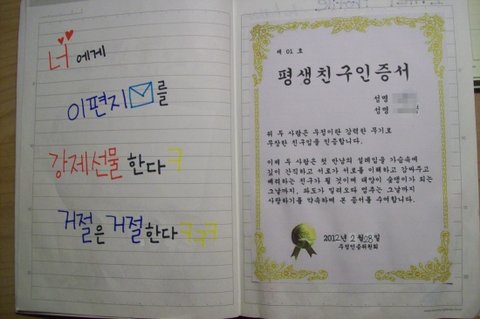 너에게
이편지를
강제선물 한다ㅋ
거절은 거절한다ㅋㅋㅋ
제 01 호
평생친구인증서
성명
성명
위 두 사람은 우정이란 강력한 무기로
무장한 친구임을 인증합니다.
이제 두 사람은 첫 만남의 설레임을 가슴속에
깊이 간직하고 서로가 서로를 이해하고 감싸주고
배려하는 친구가 될 것이며 태양이 숨명이 되는
그날까지, 파도가 밀려오다 멈추는 그날까지
사랑하기를 약속하며 본 증서를 수여합니다.
2012년 2월 28일
우정인증위원회